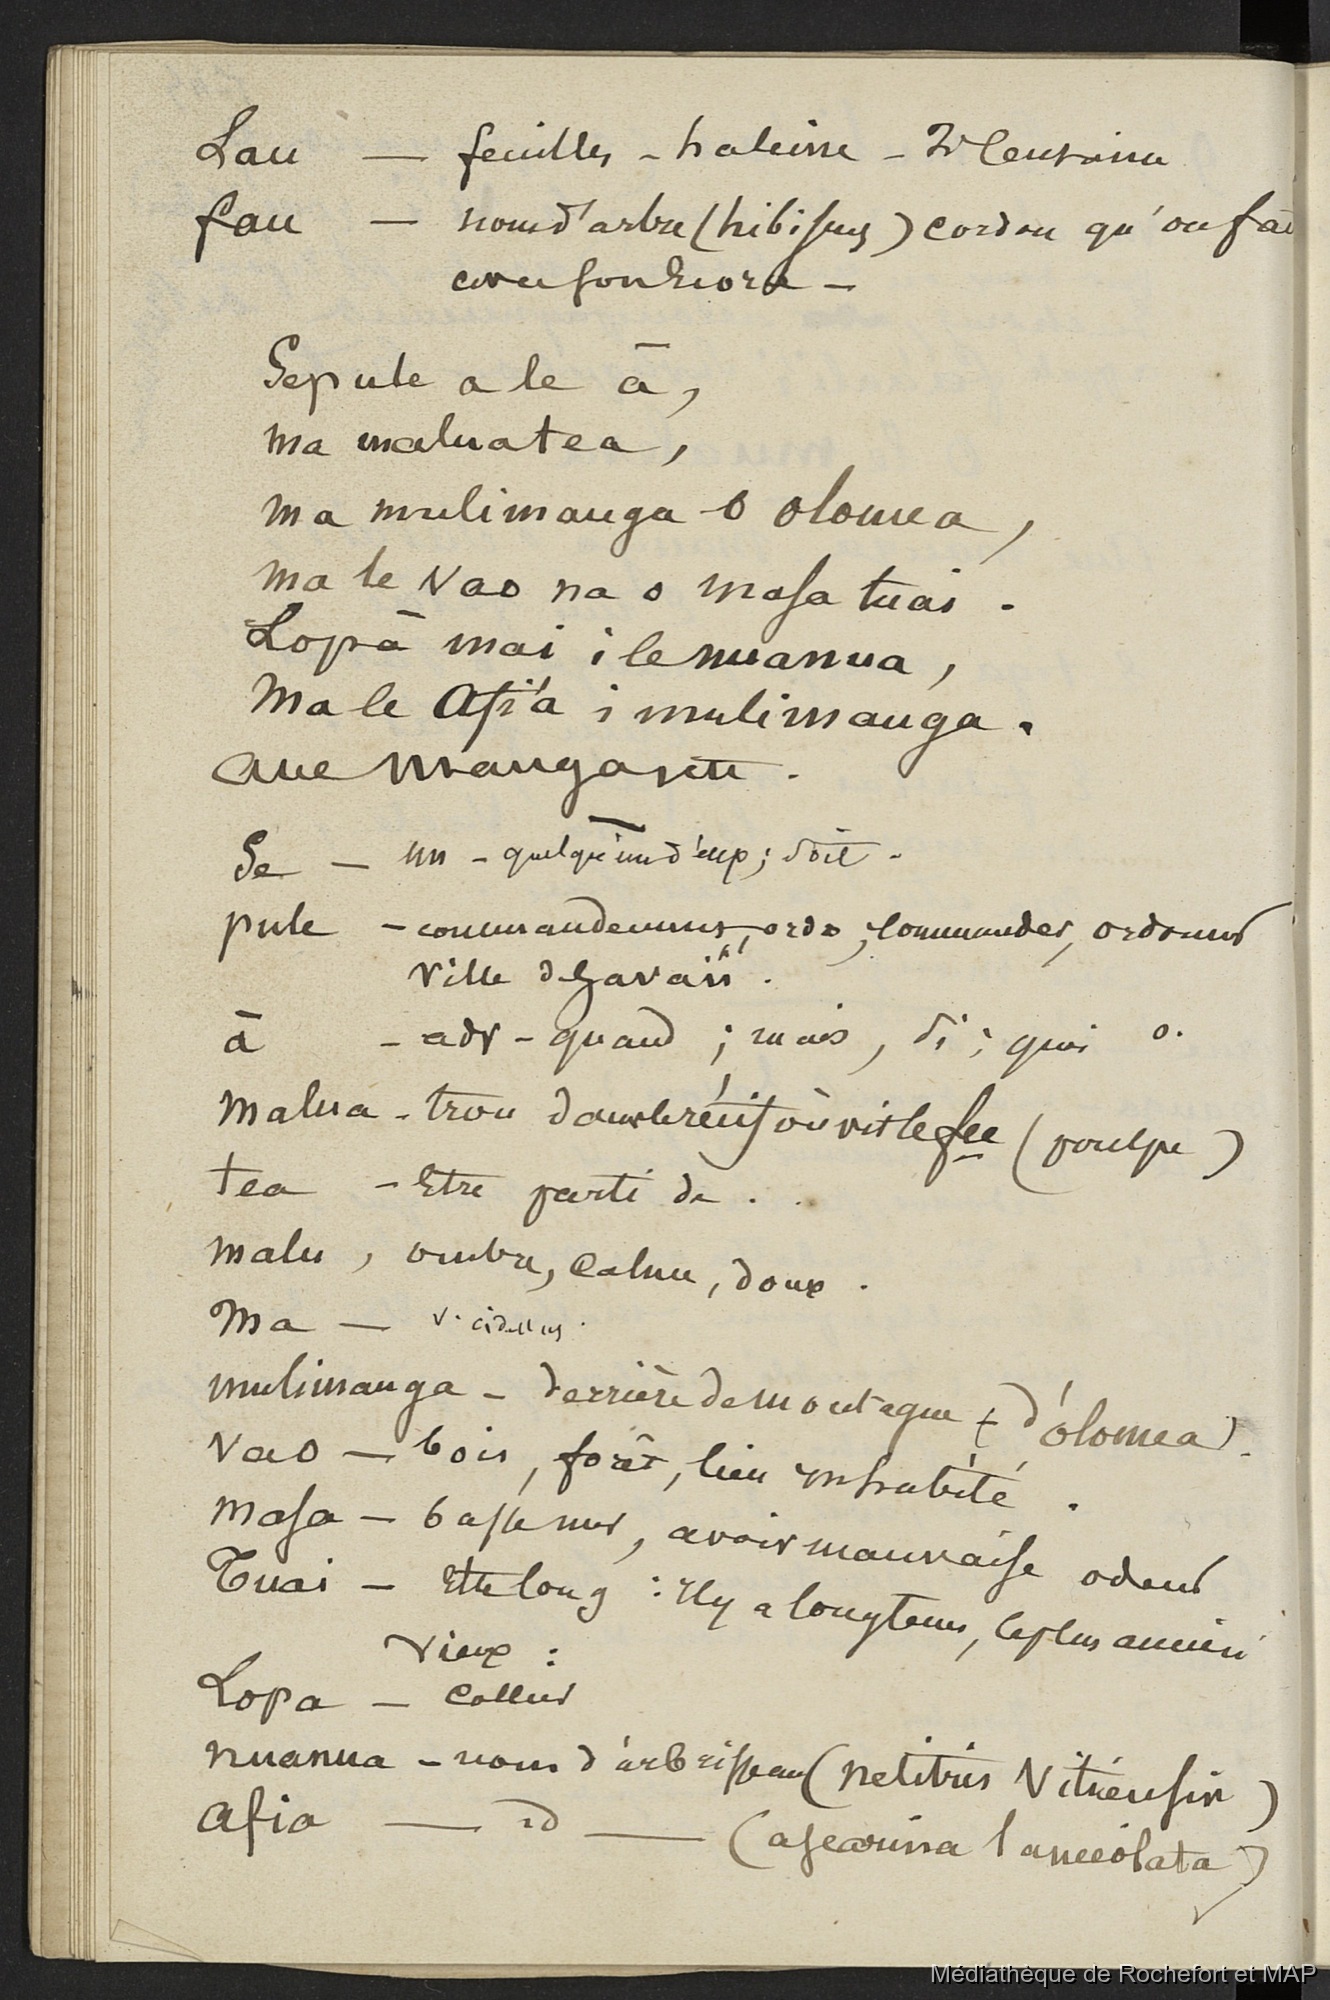 Lau — feuilles - haleine -
fau — nom d'arbre (hibiscus) cordon qu'on fai
avec son écorce —
Se pule a le ā,
ma maluatea,
ma mulimauga o olomea,
ma le vao na o masa tuai.
Lopā mai i le nuanua,
Ma le Afi'a i mulimauga.
Aue Maugasete.
Se — un - quelqu'un d'eux; soit.
pule - commandement, ordre; commander, ordonner
ville de Savaii.
ā - adv - quand; mais, si; quoi o.
Malua - trou dans le récif où vit le fee (poulpe)
tea - Etre parti de . .
malu, ombre, calme, doux.
Ma — v. ci dessus.
mulimauga - derrière de montagne (d'olomea).
Vao — bois, forêt, lieu inhabité.
Masa — basse mer, avoir mauvaise odeur
Tuai — Etre long : il y a longtems, le plus ancien
vieux :
Lopa — Collier
nuanua - nom d'arbrisseau (nelitris Vitiensis)
Afia — id — (ascarina lanceolata)
Médiathèque de Rochefort et MAP